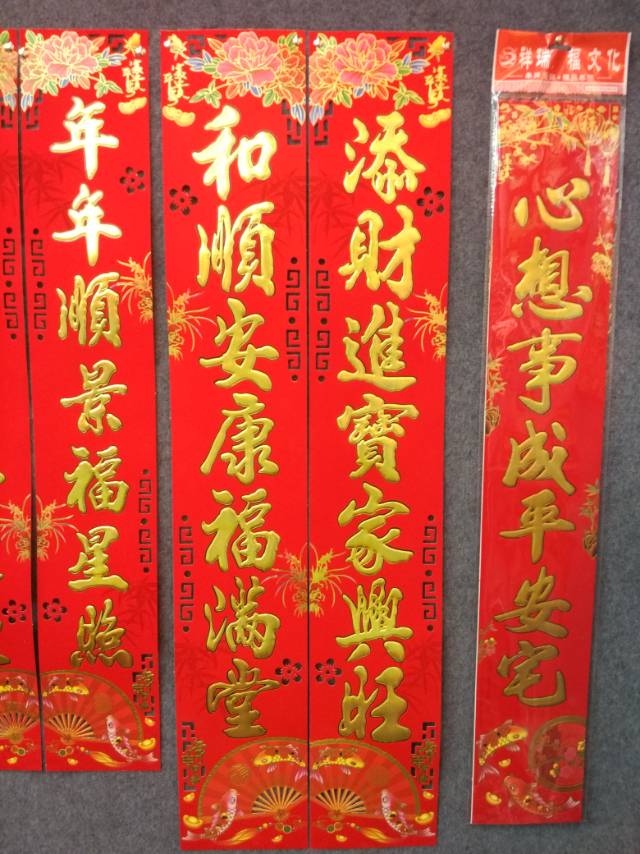 祥瑞 福文化
心想事成平安宅
添財進寶家興旺
和順安康福滿堂
年年順景福星照